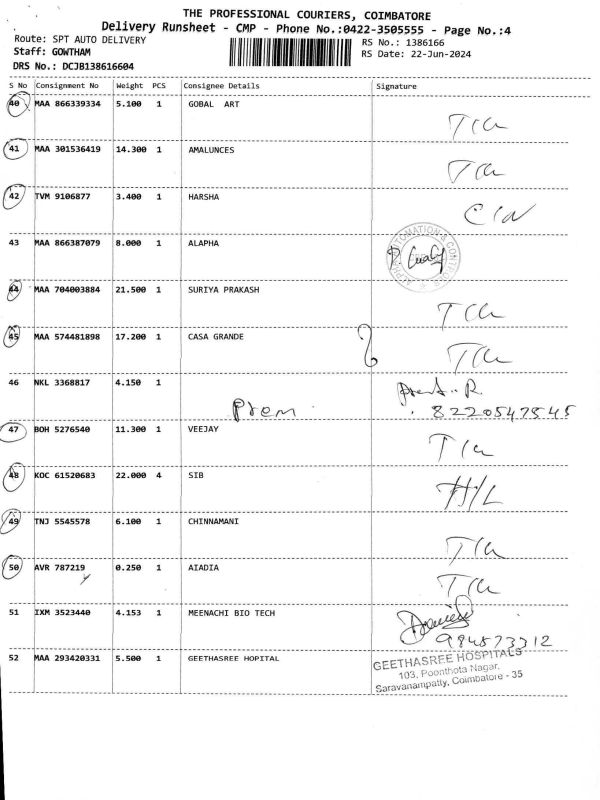 THE PROFESSIONAL COURIERS, COIMBATORE
Delivery Runsheet - CMP - Phone No.:0422-3505555 - Page No.:4
Route: SPT AUTO DELIVERY
RS No.: 1386166
Staff: GOWTHAM
RS Date: 22-Jun-2024
DRS No.: DCJB138616604
S No Consignment No Weight PCS Consignee Details Signature
40 MAA 866339334 5.100 1 GOBAL ART
41 MAA 301536419 14.300 1 AMALUNCES
42 TVM 9106877 3.400 1 HARSHA
43 MAA 866387079 8.000 1 ALAPHA
44 MAA 704003884 21.500 1 SURIYA PRAKASH
45 MAA 574481898 17.200 1 CASA GRANDE
46 NKL 3368817 4.150 1
Prem
8220547545
47 BOH 5276540 11.300 1 VEEJAY
48 KOC 61520683 22.000 4 SIB
H/L
49 TNJ 5545578 6.100 1 CHINNAMANI
50 AVR 787219 0.250 1 AIADIA
51 IXM 3523440 4.153 1 MEENACHI BIO TECH
984573312
52 MAA 293420331 5.500 1 GEETHASREE HOPITAL
GEETHASREE HOSPITALS
103, Poonthota Nagar,
Saravanampatty, Coimbatore - 35